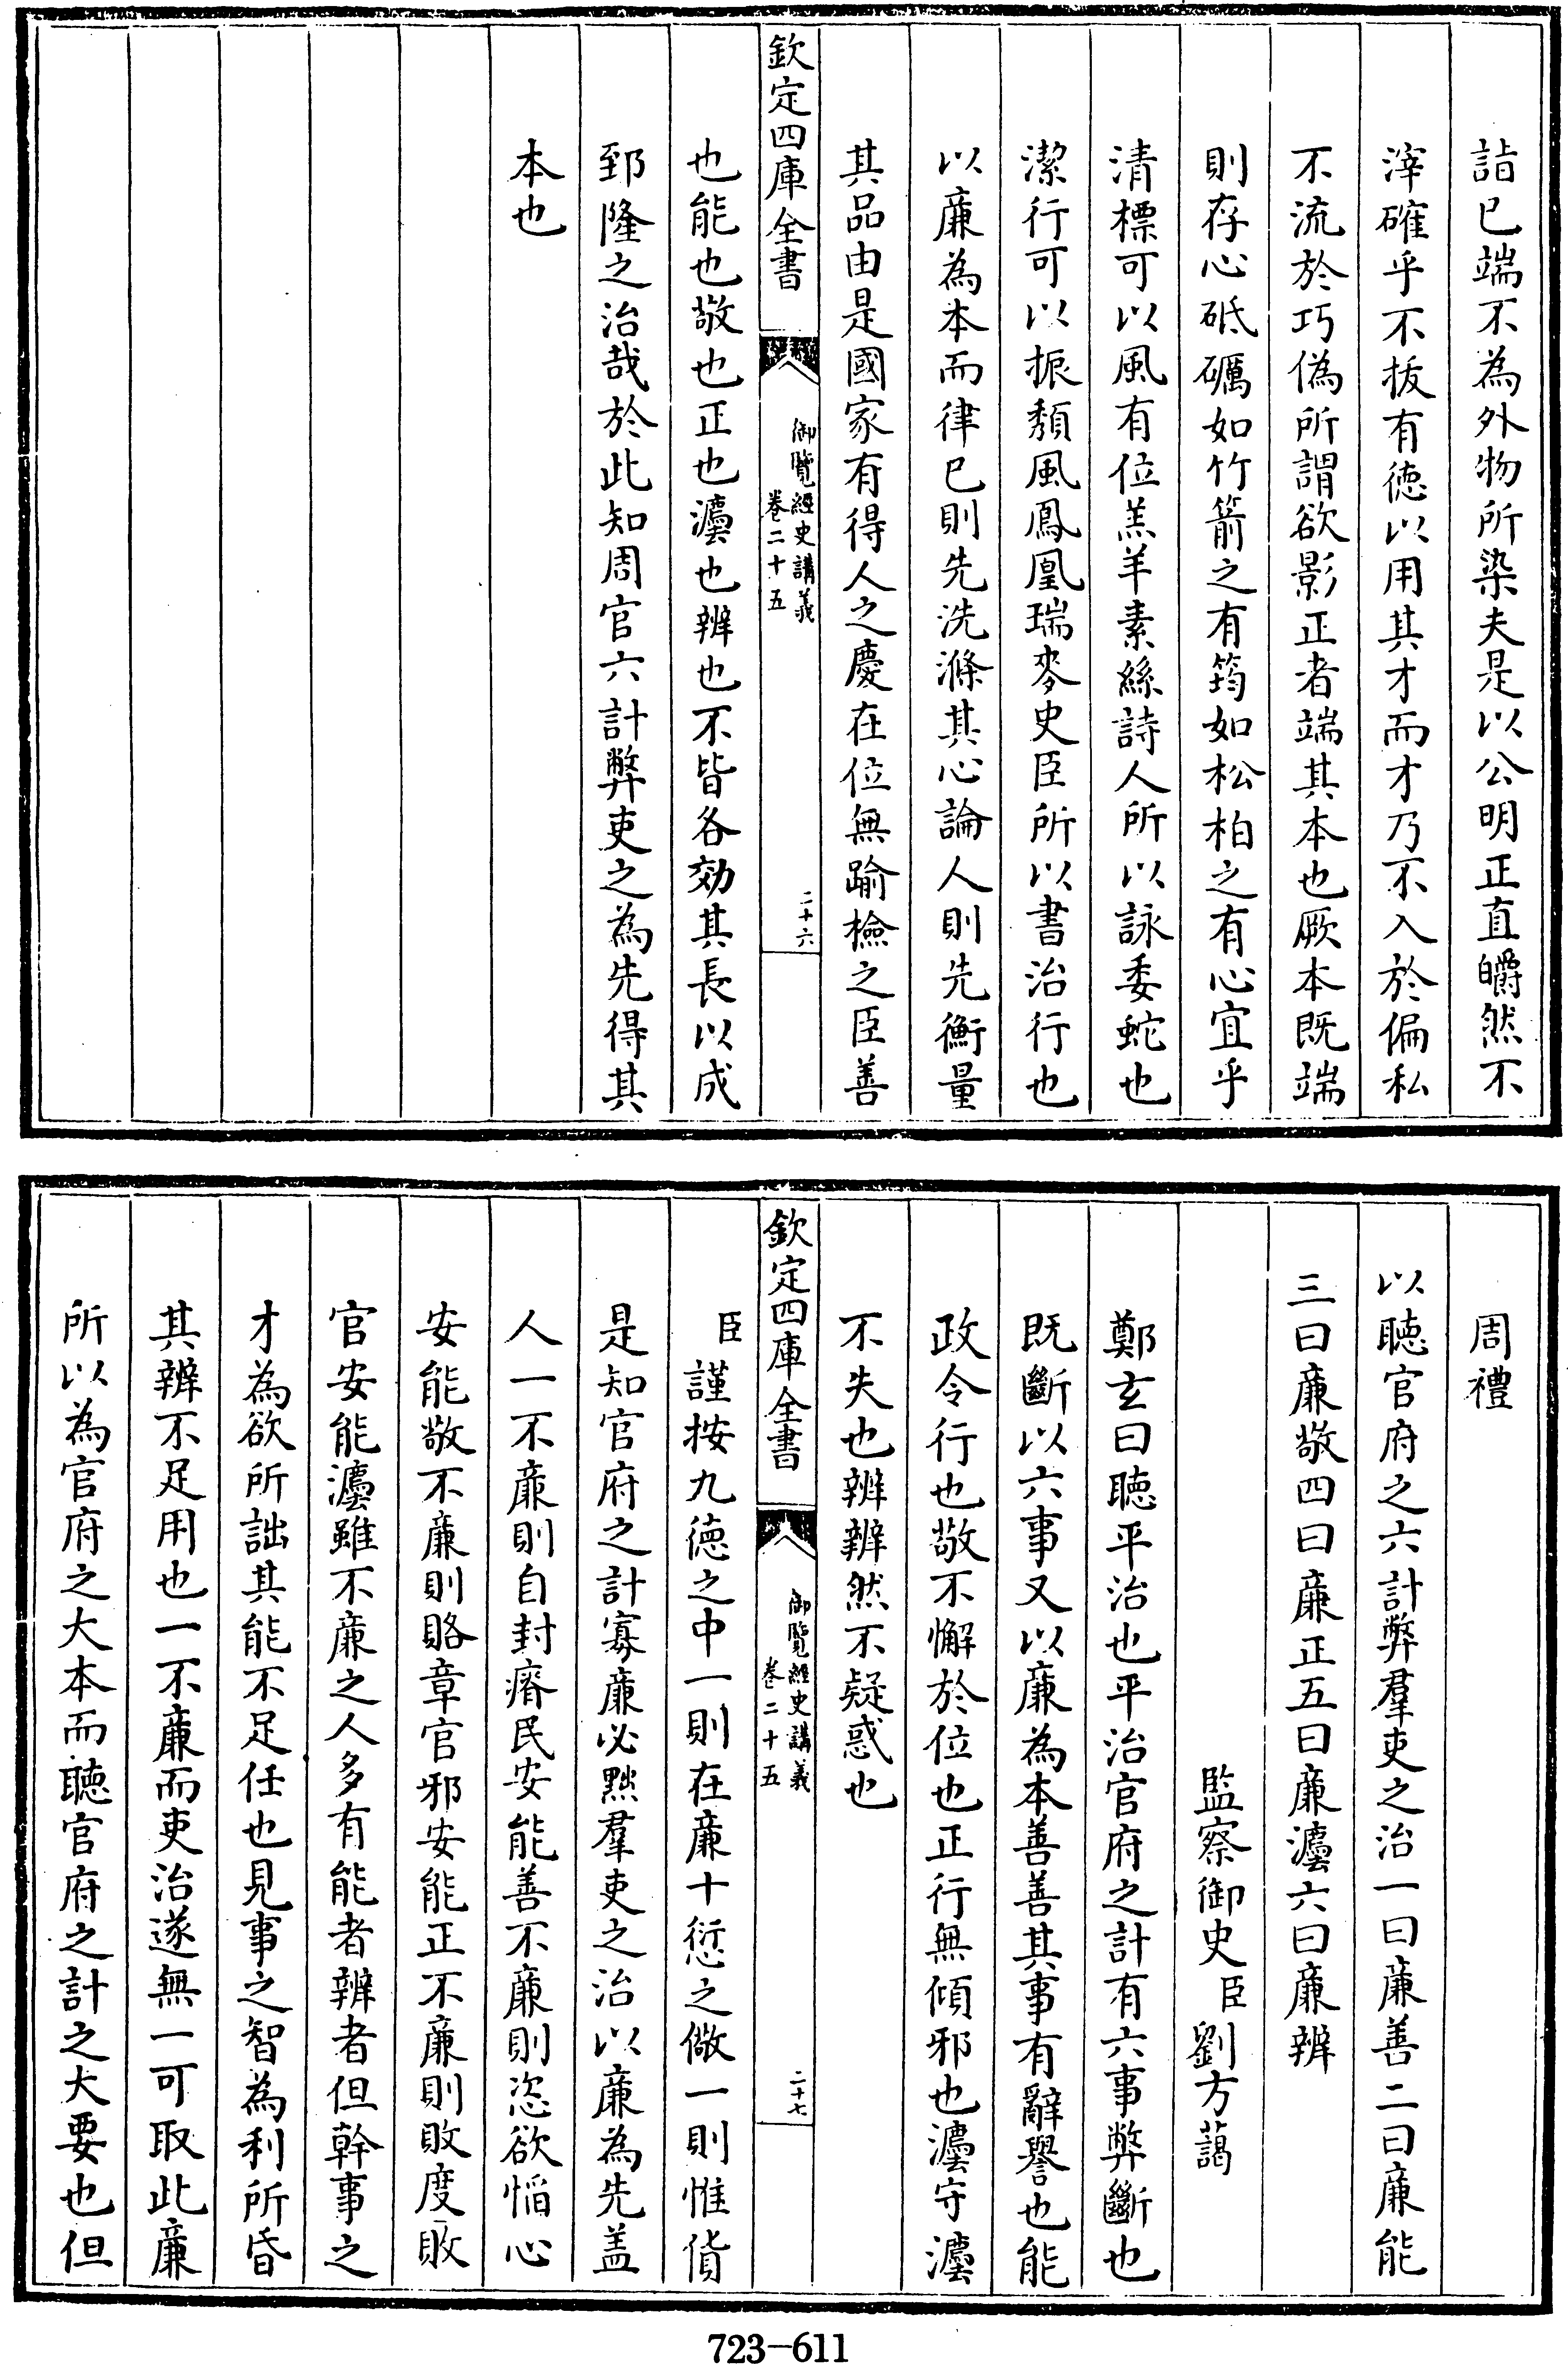 詣已端不為外物所染夫是以公明正直皭然不
滓確乎不拔有徳以用其才而才乃不入於偏私
不流於巧偽所謂欲影正者端其本也厥本既端
則存心砥礪如竹箭之有筠如松柏之有心宜乎
清標可以風有位羔羊素絲詩人所以詠委蛇也
潔行可以振頽風鳳凰瑞麥史臣所以書治行也
以廉為本而律已則先洗滌其心論人則先衡量
其品由是國家有得人之慶在位無踰檢之臣善
欽定四庫全書
御覽經史講義
卷二十五
二十六
也能也敬也正也灋也辨也不皆各効其長以成
郅隆之治哉於此知周官六計弊吏之為先得其
本也
周禮
以聽官府之六計弊羣吏之治一曰廉善二曰廉能
三曰廉敬四曰廉正五曰廉灋六曰廉辨
監察御史臣劉方藹
鄭玄曰聽平治也平治官府之計有六事弊斷也
既斷以六事又以廉為本善善其事有辭譽也能
政令行也敬不懈於位也正行無傾邪也灋守灋
不失也辨辨然不疑惑也
欽定四庫全書
御覽經史講義
卷二十五
二十七
臣謹按九徳之中一則在廉十愆之儆一則惟貨
是知官府之計寡廉必黜羣吏之治以廉為先盖
人一不廉則自封瘠民安能善不廉則恣欲慆心
安能敬不廉則賂章官邪安能正不廉則敗度敗
官安能灋雖不廉之人多有能者辨者但幹事之
才為欲所詘其能不足任也見事之智為利所昏
其辨不足用也一不廉而吏治遂無一可取此廉
所以為官府之大本而聽官府之計之大要也但
723-611